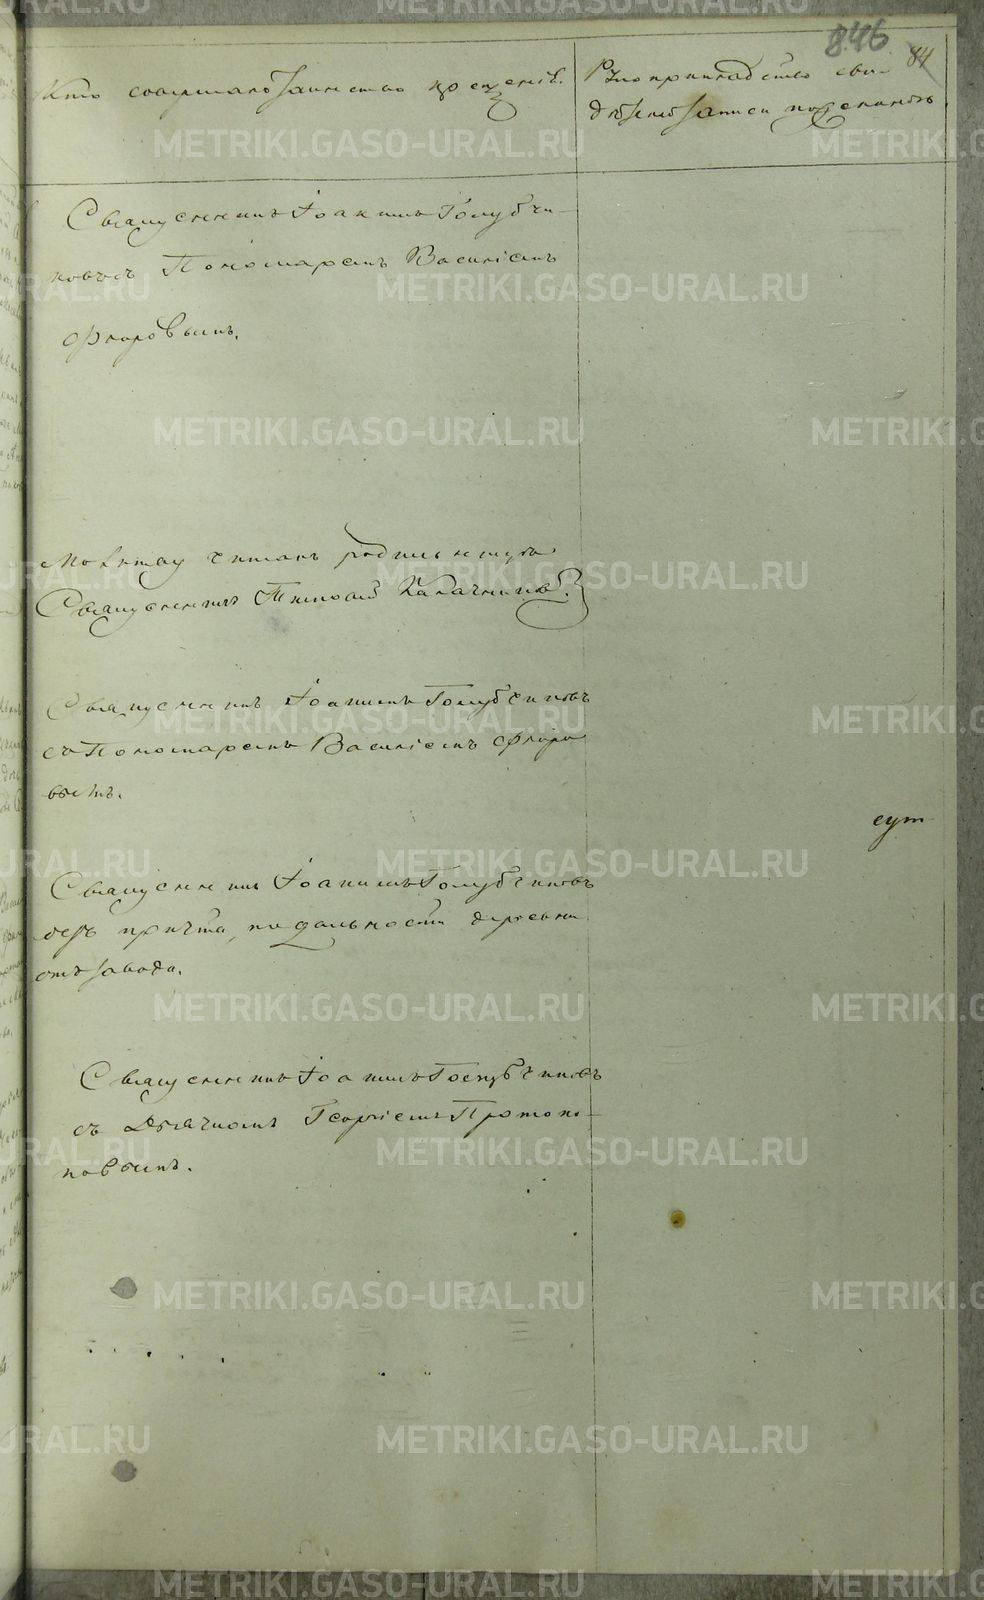 846
84
Кто совершалъ таинство крещенія.
Рукоприкладство сви-
дѣтелей записи по желанію.
Священникъ Іоакимъ Голубчи-
ковъ съ Пономаремъ Василіемъ
Флоровымъ.
Молитву читалъ родильницѣ
Священникъ Тимофей Калачниковъ.
Священникъ Іоакимъ Голубчиковъ
съ Пономаремъ Василіемъ Флоро
вымъ.
сут
Священникъ Іоакимъ Голубчиковъ
безъ причта, по дальности деревни
отъ завода.
Священникъ Іоакимъ Голубчиковъ
съ Дьячкомъ Георгіемъ Протопо-
повымъ.
METRIKI.GASO-URAL.RU